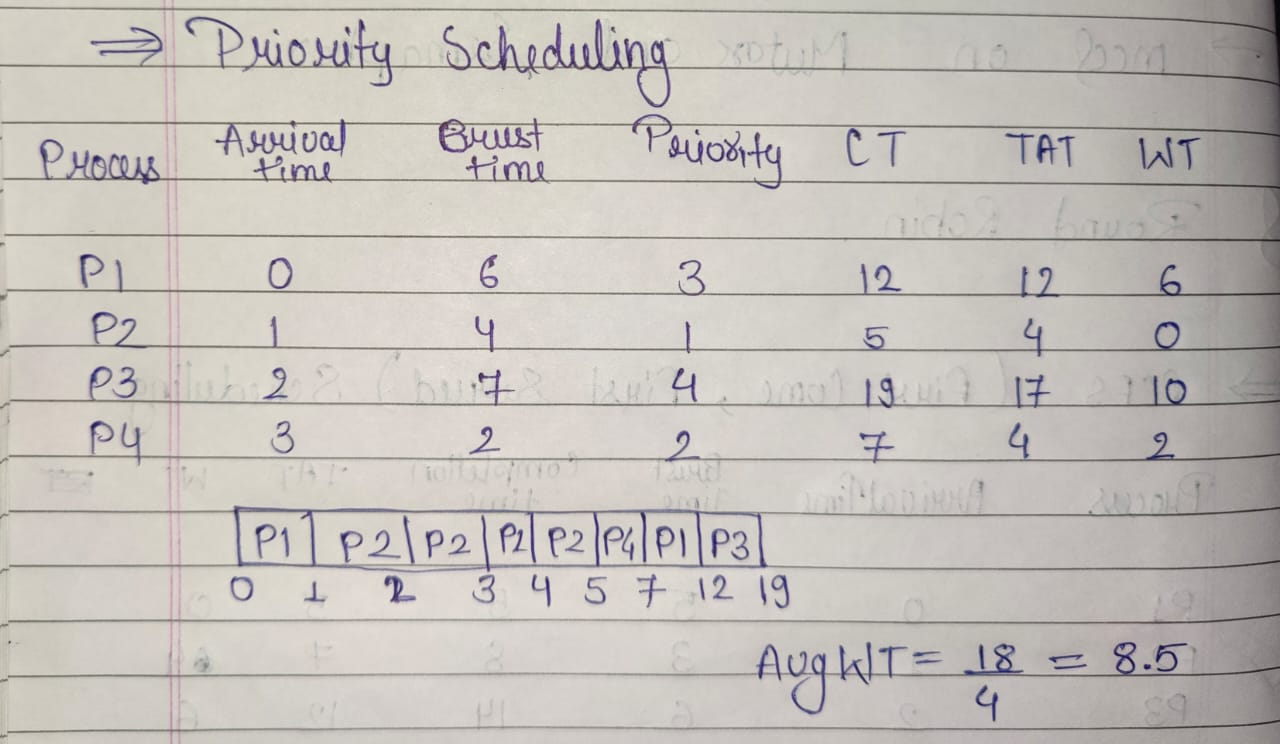 ⇒ Priority Scheduling
Process Arrival time Brust time Priority CT TAT WT
P1 0 6 3 12 12 6
P2 1 4 1 5 4 0
P3 2 7 4 19 17 10
P4 3 2 2 7 4 2
P1 P2 P2 P2 P2 P4 P1 P3
0 1 2 3 4 5 7 12 19
Avg WT = 18/4 = 8.5